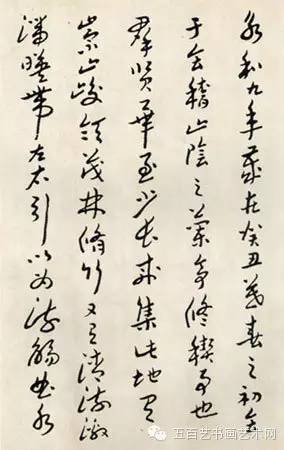 永和九年歲在癸丑暮春之初會
于會稽山陰之蘭亭修禊事也
羣賢畢至少長咸集此地有
崇山峻領茂林脩竹又有清流激
湍暎帶左右引以為流觴曲水
五百艺书画艺术网